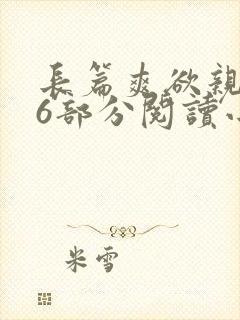 長篇爽欲親
6部分閱讀小
米雪